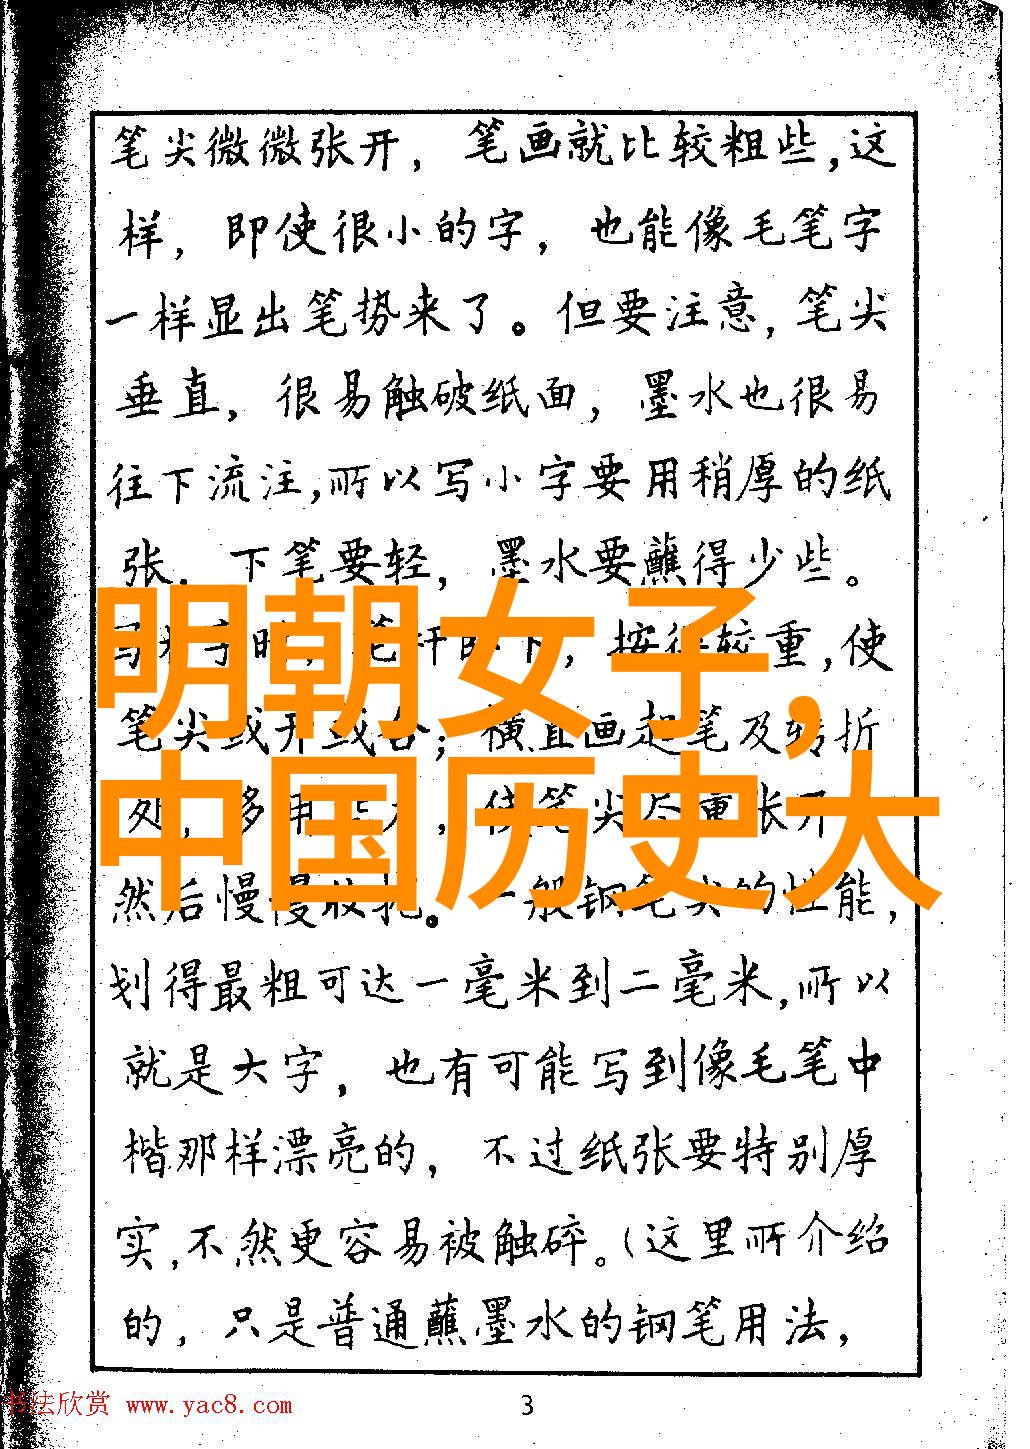 笔尖微微张开，笔画就比较粗些，这
样，即使很小的字，也能像毛笔字
一样显出笔势来了。但要注意，笔尖
垂直，很易触破纸面，墨水也很易
往下流注，所以写小字要用稍厚的纸
张．下笔要轻，墨水要蘸得少些。
明朝女子，
按得较重，使
笔尖或开或合；横直画起笔及转折
中国历史大
处，
笔尖
张开
然后慢慢收拢。一般钢笔尖的性能，
划得最粗可达一毫米到二毫米，所以
就是大字，也有可能写到像毛笔中
楷那样漂亮的，不过纸张要特别厚
实，不然更容易被触碎。（这里所介绍
的，只是普通蘸墨水的钢笔用法，
书法欣赏 www.yac8.com
3